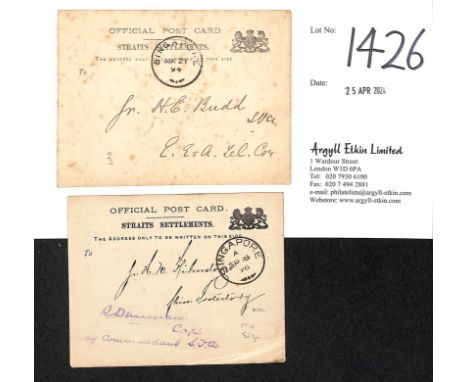 OFFICIAL POST CARD.
STRAITS SETTLEMENTS.
THE ADDRESS ONLY TO BE WRITTEN ON THIS SIDE.
SINGAPORE
94
To
H. E. Budd
E. E. & A. Tel. Coy
OFFICIAL POST CARD.
STRAITS SETTLEMENTS.
THE ADDRESS ONLY TO BE WRITTEN ON THIS SIDE.
SINGAPORE
A
SP
96
To
Capt
Commandant
Lot No:
1426
Date:
25 APR 2024
Argyll Etkin Limited
1 Wardour Street
London W1D 6PA
Tel: 020 7930 6100
Fax: 020 7494 2881
e-mail: philatelists@argyll-etkin.com
Webstore: www.argyll-etkin.com